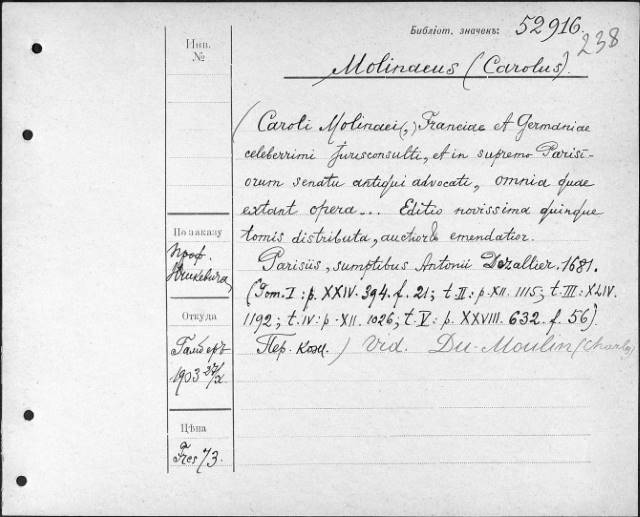 Библіот. значекъ: 52916.
238
Инв.
№
Molinaeus (Carolus).
(Caroli Molinaei(,) Franciae et Germaniae
celeberrimi Jurisconsulti, et in supremo Parisi-
orum senatu antiqui advocati, omnia quae
extant opera... Editio novissima quinque
tomis distributa, auctior & emendatior.
Parisiis, sumptibus Antonii Dezallier. 1681.
(Tom. I: p. XXIV. 394. f. 21; t. II: p. XII. 1115; t. III: XLIV.
1192; t. IV: p. XII. 1026; t. V: p. XXVIII. 632. f. 56).
Пер. кож.) Vid. Du-Moulin (Charles)
По заказу
проф.
Откуда
1903 27/X.
Цѣна
Frcs 73.